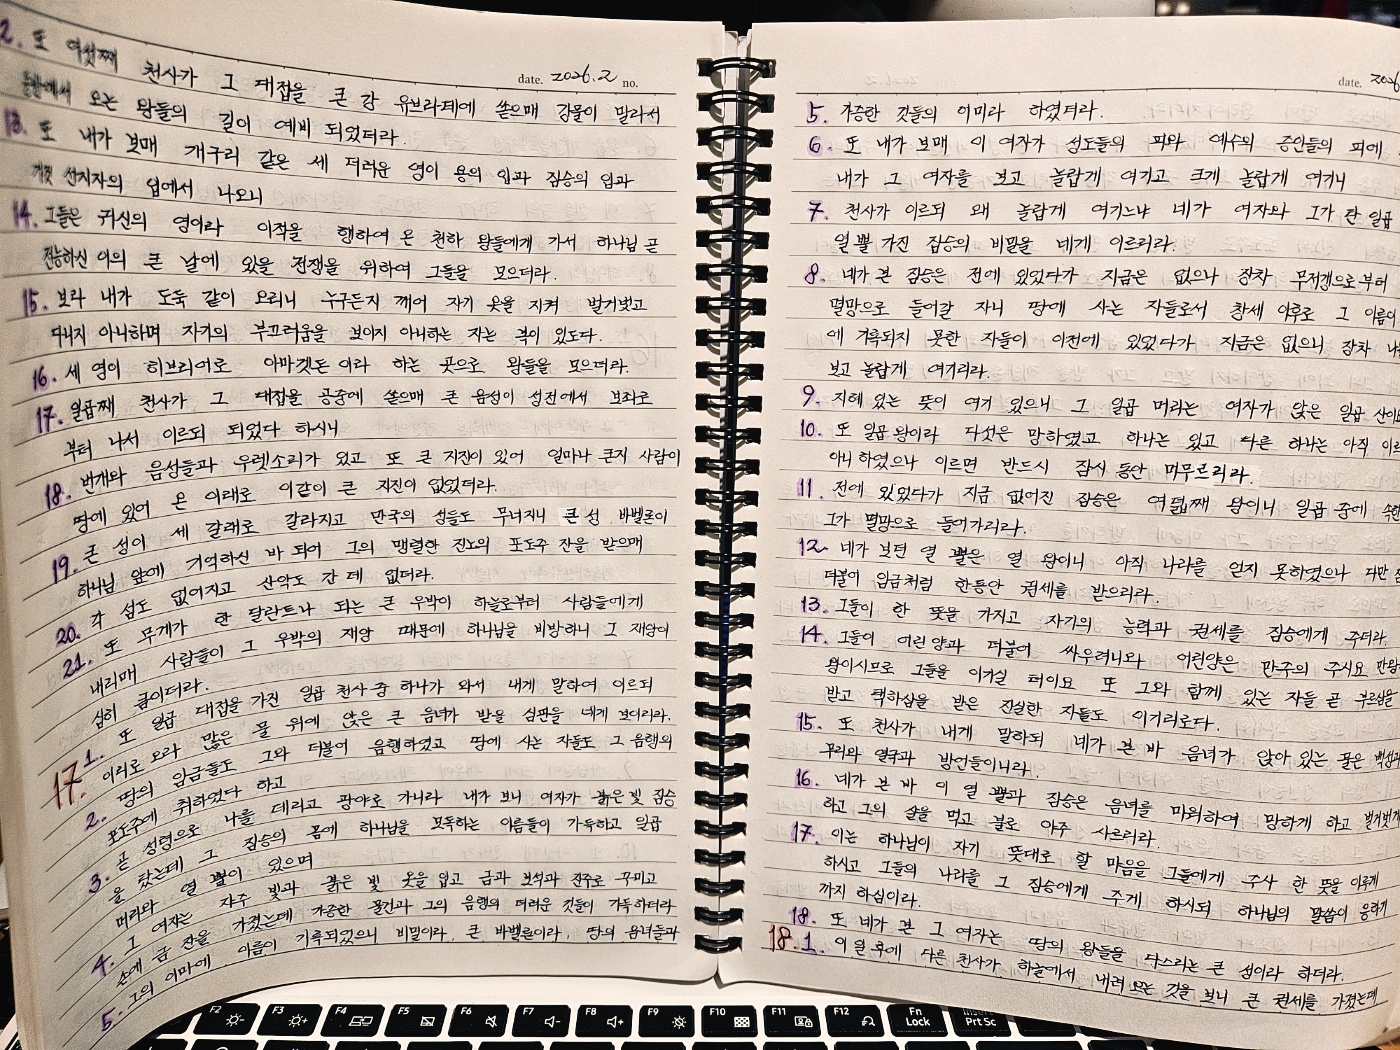 date. 2026.2 no.
2. 또 여섯째 천사가 그 대접을 큰 강 유브라데에 쏟으매 강물이 말라서
동방에서 오는 왕들의 길이 예비 되었더라.
13. 또 내가 보매 개구리 같은 세 더러운 영이 용의 입과 짐승의 입과
거짓 선지자의 입에서 나오니
14. 그들은 귀신의 영이라 이적을 행하여 온 천하 왕들에게 가서 하나님 곧
전능하신 이의 큰 날에 있을 전쟁을 위하여 그들을 모으더라.
15. 보라 내가 도둑 같이 오리니 누구든지 깨어 자기 옷을 지켜 벌거벗고
다니지 아니하며 자기의 부끄러움을 보이지 아니하는 자는 복이 있도다.
16. 세 영이 히브리어로 아마겟돈이라 하는 곳으로 왕들을 모으더라.
17. 일곱째 천사가 그 대접을 공중에 쏟으매 큰 음성이 성전에서 보좌로
부터 나서 이르되 되었다 하시니
18. 번개와 음성들과 우렛소리가 있고 또 큰 지진이 있어 얼마나 큰지 사람이
땅에 있어 온 이래로 이같이 큰 지진이 없었더라.
19. 큰 성이 세 갈래로 갈라지고 만국의 성들도 무너지니 큰 성 바벨론이
하나님 앞에 기억하신 바 되어 그의 맹렬한 진노의 포도주 잔을 받으매
20. 각 섬도 없어지고 산악도 간 데 없더라.
21. 또 무게가 한 달란트나 되는 큰 우박이 하늘로부터 사람들에게
내리매 사람들이 그 우박의 재앙 때문에 하나님을 비방하니 그 재앙이
심히 큼이더라.
17. 1. 또 일곱 대접을 가진 일곱 천사 중 하나가 와서 내게 말하여 이르되
이리로 오라 많은 물 위에 앉은 큰 음녀가 받을 심판을 네게 보이리라.
2. 땅의 임금들도 그와 더불어 음행하였고 땅에 사는 자들도 그 음행의
포도주에 취하였다 하고
3. 곧 성령으로 나를 데리고 광야로 가니라 내가 보니 여자가 붉은 빛 짐승
을 탔는데 그 짐승의 몸에 하나님을 모독하는 이름들이 가득하고 일곱
머리와 열 뿔이 있으며
4. 그 여자는 자주 빛과 붉은 빛 옷을 입고 금과 보석과 진주로 꾸미고
손에 금 잔을 가졌는데 가증한 물건과 그의 음행의 더러운 것들이 가득하더라
5. 그의 이마에 이름이 기록되었으니 비밀이라, 큰 바벨론이라, 땅의 음녀들과
date. 2026
5. 가증한 것들의 어미라 하였더라.
6. 또 내가 보매 이 여자가 성도들의 피와 예수의 증인들의 피에
내가 그 여자를 보고 놀랍게 여기고 크게 놀랍게 여기니
7. 천사가 이르되 왜 놀랍게 여기느냐 네가 여자와 그가 탄 일곱
열 뿔 가진 짐승의 비밀을 네게 이르리라.
8. 네가 본 짐승은 전에 있었다가 지금은 없으나 장차 무저갱으로부터
멸망으로 들어갈 자니 땅에 사는 자들로서 창세 이후로 그 이름이
에 기록되지 못한 자들이 이전에 있었다가 지금은 없으나 장차
보고 놀랍게 여기리라.
9. 지혜 있는 뜻이 여기 있으니 그 일곱 머리는 여자가 앉은 일곱 산이요
10. 또 일곱 왕이라 다섯은 망하였고 하나는 있고 다른 하나는 아직
아니하였으나 이르면 반드시 잠시 동안 머무르리라.
11. 전에 있었다가 지금 없어진 짐승은 여덟째 왕이니 일곱 중에
그가 멸망으로 들어가리라.
12. 네가 보던 열 뿔은 열 왕이니 아직 나라를 얻지 못하였으나 다만
더불어 임금처럼 한동안 권세를 받으리라.
13. 그들이 한 뜻을 가지고 자기의 능력과 권세를 짐승에게 주더라.
14. 그들이 어린 양과 더불어 싸우려니와 어린양은 만주의 주시요 만왕
왕이시므로 그들을 이기실 터이요 또 그와 함께 있는 자들 곧 부르심을
받고 택하심을 받은 진실한 자들도 이기리로다.
15. 또 천사가 내게 말하되 네가 본 바 음녀가 앉아 있는 물은 백성과
무리와 열국과 방언들이니라.
16. 네가 본 바 이 열 뿔과 짐승은 음녀를 미워하여 망하게 하고 벌거벗게
하고 그의 살을 먹고 불로 아주 사르리라.
17. 이는 하나님이 자기 뜻대로 할 마음을 그들에게 주사 한 뜻을 이루게
하시고 그들의 나라를 그 짐승에게 주게 하시되 하나님의 말씀이 응하기
까지 하심이라.
18. 또 네가 본 그 여자는 땅의 왕들을 다스리는 큰 성이라 하더라.
18. 1. 이 일 후에 다른 천사가 하늘에서 내려 오는 것을 보니 큰 권세를 가졌는데
F2 F3 F4 F5 F6 F7 F8 F9 F10 F11 F12 Fn Lock Prt Sc